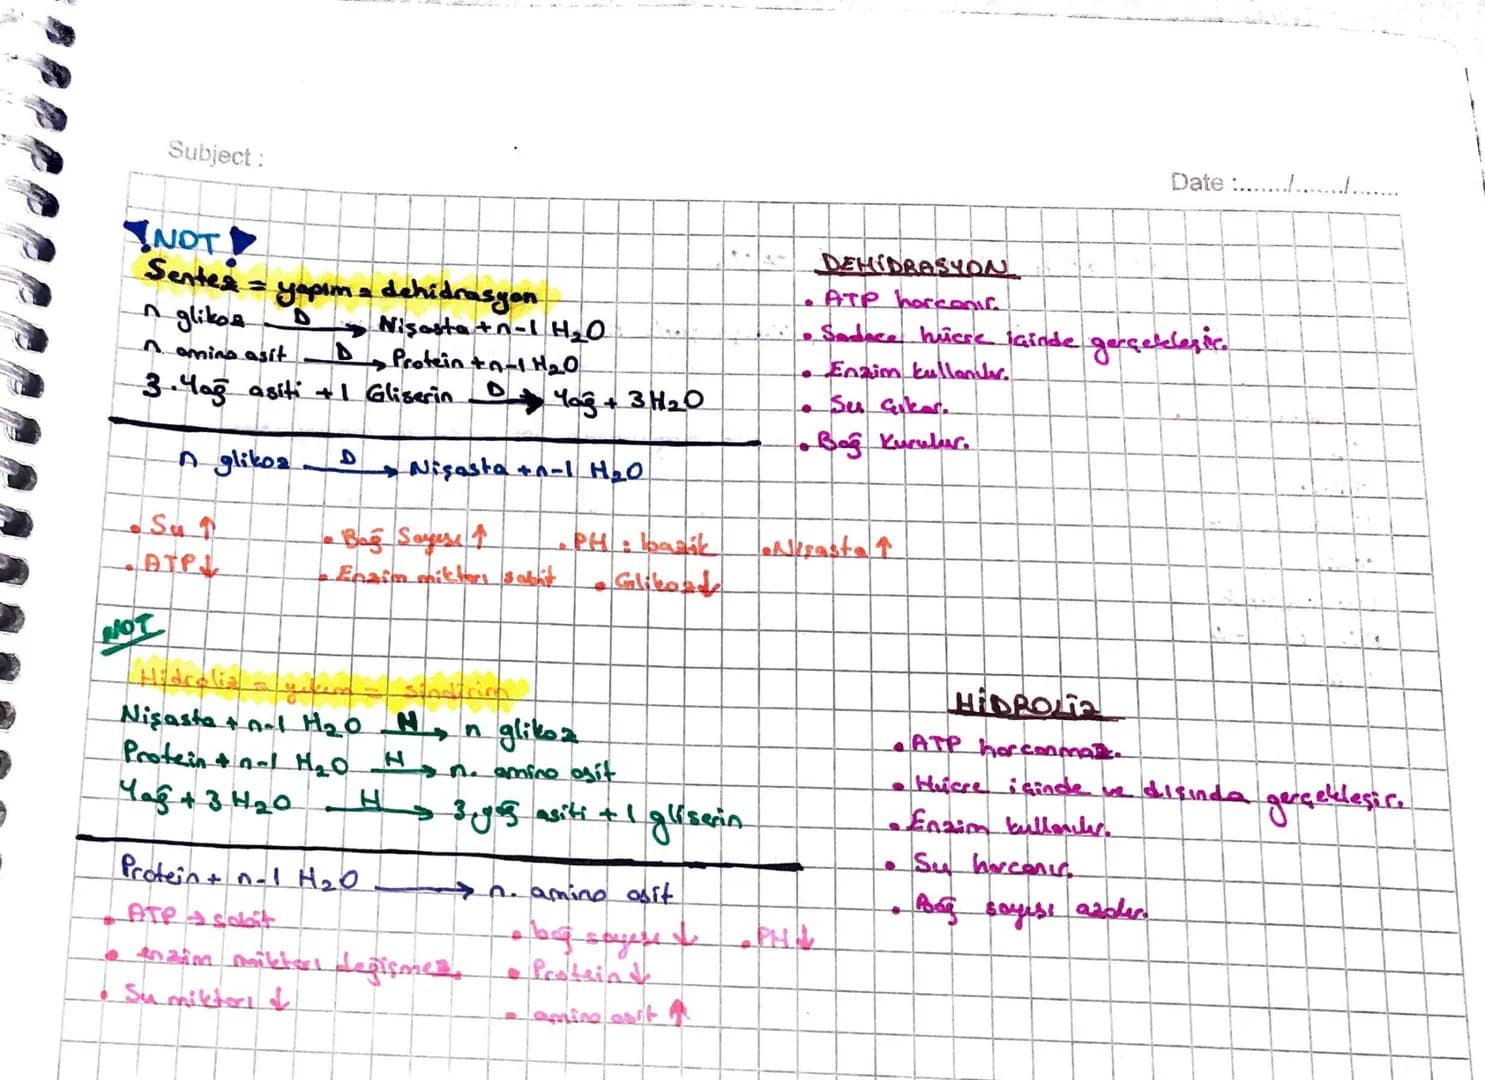 Subject :
Date :......./......./.......
NOT
Sentez = yapım = dehidrasyon
n glikoz D→ Nişasta + n-1 H₂O
n. amino asit D→ Protein + n-1 H₂O
3. Yağ asiti + 1 Gliserin D→ Yağ + 3 H₂O
n glikoz D→ Nişasta + n-1 H₂O
• Su ↑
• Bağ Sayısı ↑
• PH : bazik
• Nişasta ↑
• ATP ↓
• Enzim miktarı sabit
• Glikoz ↓
DEHİDRASYON
• ATP harcanır.
• Sadece hücre içinde gerçekleşir.
• Enzim kullanılır.
• Su çıkar.
• Bağ Kurulur.
NOT
Hidroliz = yıkım = sindirim
Nişasta + n-1 H₂O H→ n glikoz
Protein + n-1 H₂O H→ n. amino asit
Yağ + 3 H₂O H→ 3.yağ asiti + 1 gliserin
Protein + n-1 H₂O → n. amino asit
• ATP → sabit
• bağ sayısı ↓
• PH ↓
• enzim miktarı değişmez.
• Protein ↓
• Su miktarı ↓
• amino asit ↑
HİDROLİZ
• ATP harcanmaz.
• Hücre içinde ve dışında gerçekleşir.
• Enzim kullanılır.
• Su harcanır.
• Bağ sayısı azalır.